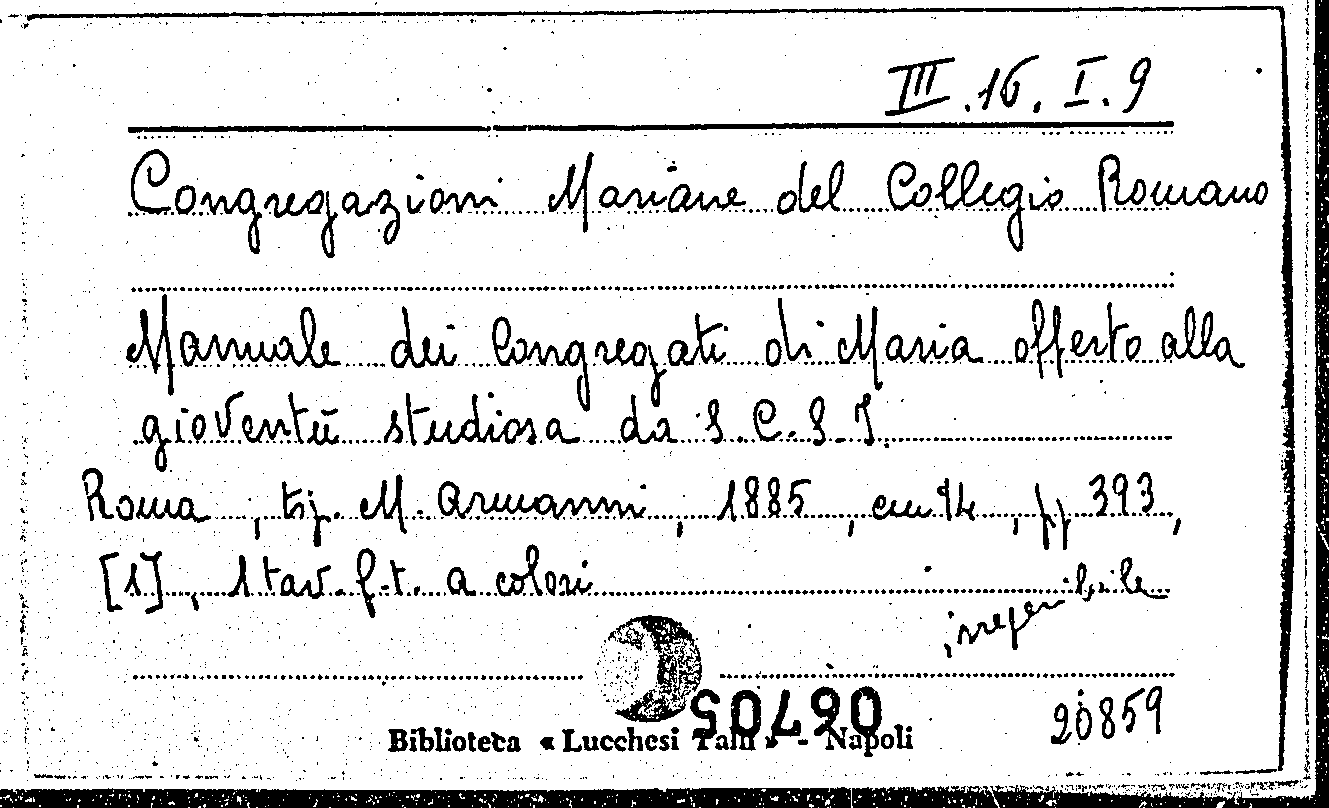 III.16.I.9
Congregazioni Mariane del Collegio Romano
Manuale dei Congregati di Maria offerto alla
gioventù studiosa da S.C.S.J.
Roma, tip. M. Armanni, 1885, cm 14, pp 393,
[1], 1 tav. f.t. a colori
irreperibile
06705
20859
Biblioteca « Lucchesi Palli » - Napoli